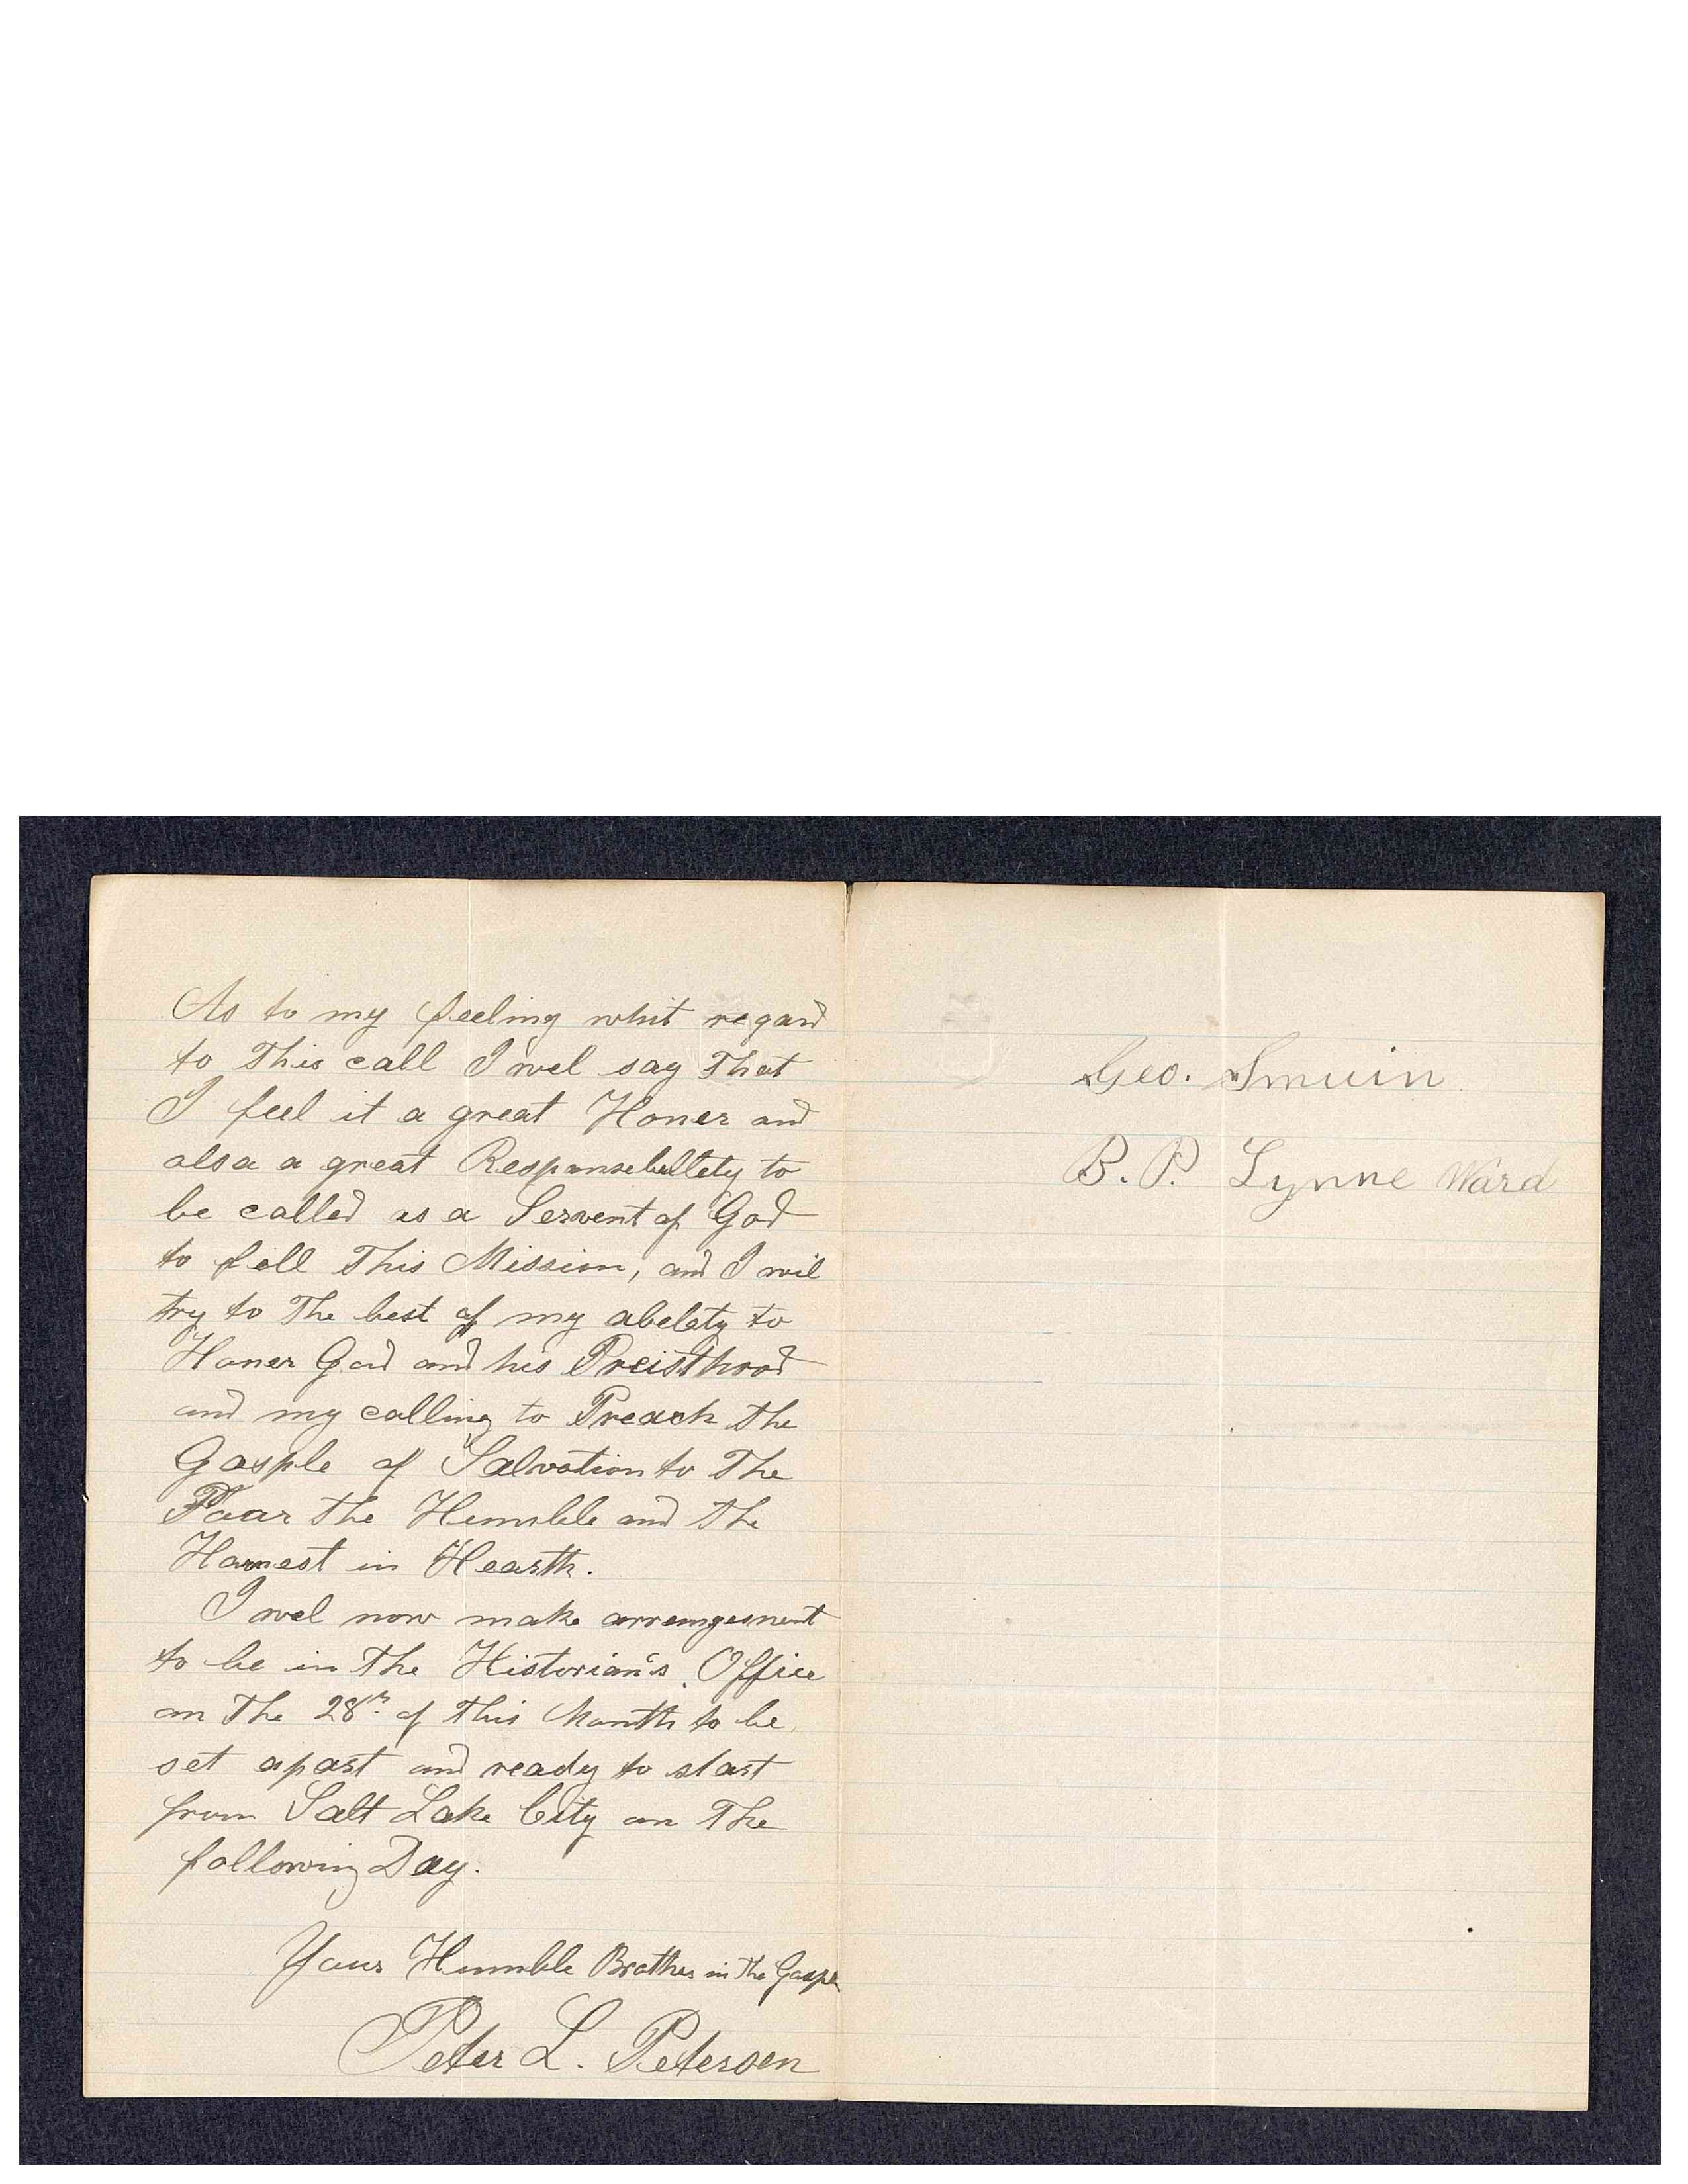 As to my feeling whit regard
to This call I wel say That
I feel it a great Honer and
also a great Responsebellety to
be called as a Servent of God
to fell This Mission, and I wil
try to The best of my abelety to
Honer God and his Preisthood
and my calling to Preach the
Gosple of Salvation to The
Poor the Humble and the
Honest in Hearth.
I wel now make arrengement
to be in The Historian's Office
on The 28th of This Month to be
set apart and ready to start
from Salt Lake City on The
following Day.
Your Humble Brother in The Gospel
Peter L. Petersen
Geo. Smuin
B.P. Lynne Ward